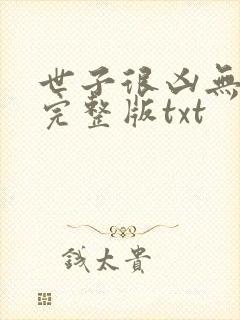 世子很凶無
完整版txt
钱太貴